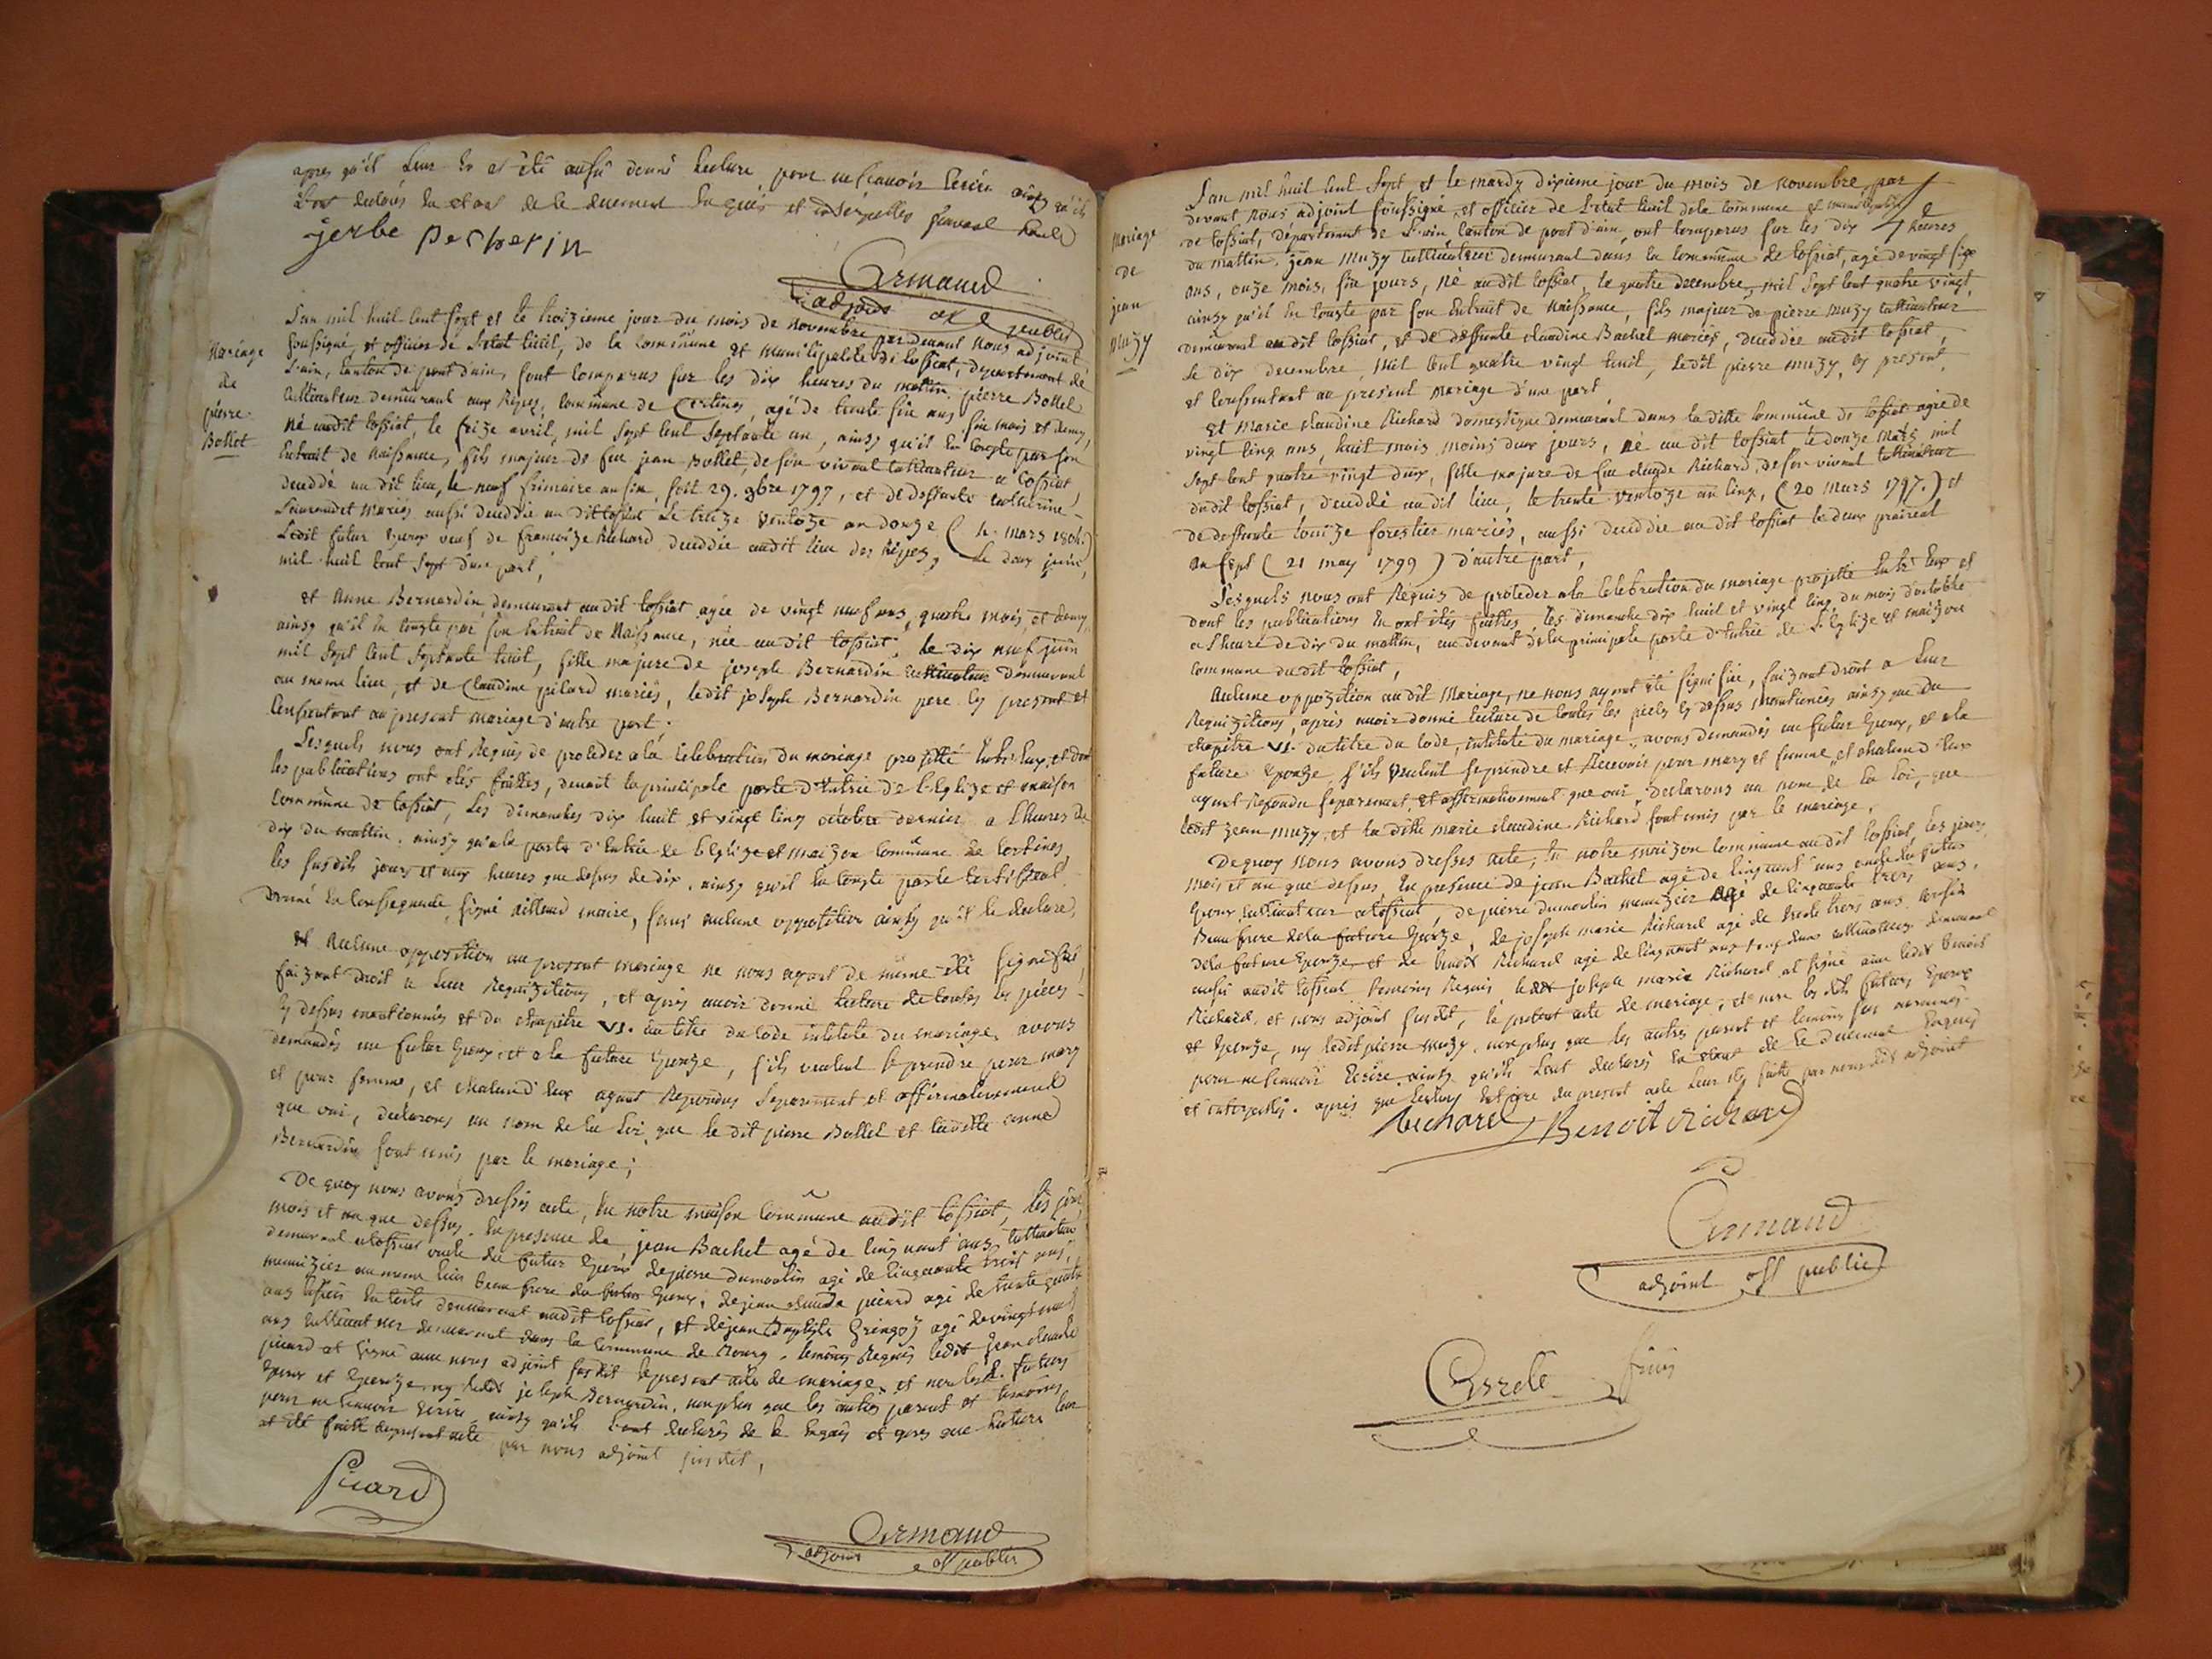 apres qu'il leur en a été aussi donné lecture, pour ne scavoir écrire ainsy qu'ils
l'ont declarés en etant de le duement enquis et interpellés
jerbe pecherin
Armaud
adjoint off public
mariage
de
pierre
Bollet
L'an mil huil cent sept et le troizieme jour du mois de novembre par devant nous adjoint
soussigné, et officier de l'etat civil, de la commune et municipalité de tossiat, departement de
l'ain, canton de pont dain, sont comparus sur les dix heures du mattin, pierre Bollet
cultivateur demeurant aux Rippes, commune de Certines, agé de trente six ans six mois et demy,
né audit tossiat, le seize avril, mil sept cent septante un, ainsy qu'il en conste par son
Extrait de naissance, fils majeur de feu jean Bollet, de son vivant cultivateur a tossiat,
deceddé au dit lieu, le neuf frimaire an six, soit 29. 9bre 1797, et de deffunte catherine
mariés, aussi deceddée au dit tossiat le treize ventoze an douze (4. mars 1804.)
Ledit futur Epoux veuf de francoize Richard deceddée audit lieu des Rippes, le deux juin,
mil huil cent sept d'une part,
et Anne Bernardin, demeurant audit tossiat agée de vingt neuf ans, quatre mois, et demy,
ainsy qu'il en conste par son Extrait de Naissance, née audit tossiat, le dix neuf juin
mil sept cent septante huit, fille majeure de joseph Bernardin cultivateur demeurant
au meme lieu, et de Claudine pilard mariés, ledit joseph Bernardin pere icy present et
consentant au present mariage d'autre part.
Lesquels nous ont Requis de proceder a la celebration du mariage projetté Entr'eux, et dont
les publications ont étés faittes, devant la principale porte d'entrée de l'Eglize et maison
commune de tossiat, les dimanches dix huit et vingt cinq octobre dernier a l'heures de
dix du mattin, ainsy qu'a la porte d'entrée de l'Eglize et maizon commune de certines,
les susdits jours et aux heures que dessus de dix, ainsy qu'il en conste par le certificat
donné en consequence, signé maire, sans aucune opposition ainsy qu'il le declare,
et Aucune opposition au present mariage ne nous ayant de meme été signifiés,
faizant droit a leur Requizitions, et après avoir donné lecture de toutes les pièces
cy dessus mentionnés et du chapitre VI. du titre du code intitulé du mariage, avons
demandés au futur Epoux, et a la future Epouze, s'ils veulent se prendre pour mary
et pour femme, et chacund'eux ayant Repondus separement et affirmativement
que oui, declarons au nom de la loi, que le dit pierre Bollet et laditte anne
Bernardin sont unis par le mariage;
De quoy nous avons dressés acte, en notre maison commune audit tossiat, les jour,
mois et an que dessus. En presence de jean Bachet agé de cinquant ans cultivateur
demeurant a tossiat oncle du futur Epoux, de pierre dumoulin agé de cinquante trois ans,
menuizier au meme lieu beau frere du futur Epoux, de jean claude picard agé de trente quatre
ans demeurant audit tossiat, et de jean Baptiste Gringoz agé de vingt neuf
ans cultivateur demeurant dans la commune de Bourg, temoins Requis ledit jean claude
picard a signé avec nous adjoint susdit le present acte de mariage, et non lesd. futurs
Epoux et Epouze, ny ledit joseph Bernardin, non plus que les autres parent et temoins
pour ne scavoir ecrire ainsy qu'ils l'ont declarés de ce enquis et apres que lecture leur
at été faitte du present acte par nous adjoint susdit,
Picard
Armaud
adjoint off public
mariage
de
jean
muzy
L'an mil huil cent sept, et le mardy dixieme jour du mois de novembre, par
devant nous adjoint soussigné, et officier de l'etat civil de la commune et municipalité
de tossiat, département de l'ain canton de pont d'ain, ont comparus sur les dix heures
du mattin, jean muzy cultivateur demeurant dans la commune de tossiat, agé de vingt six
ans, onze mois, six jours, né audit tossiat, le quatre decembre, mil sept cent quatre vingt,
ainsy qu'il en conste par son Extrait de naissance, fils majeur de pierre muzy cultivateur
demeurant au dit tossiat, et de deffunte claudine Bachet mariés, deceddée audit tossiat,
le dix decembre, mil cent quatre vingt huit, ledit pierre muzy cy present,
et consentant au present mariage d'une part,
et Marie claudine Richard domestique demeurant dans la ditte commune de tossiat agée de
vingt cinq ans, huit mois moins deux jours, né au dit tossiat le douze mars mil
sept cent quatre vingt deux, fille majeure de feu claude Richard, de son vivant cultivateur
audit tossiat, deceddé audit lieu, le trente ventoze an cinq, (20 mars 1797.) et
de deffunte louize forestier mariés, aussi deceddée au dit tossiat le deux prairial
an sept (21 may 1799) d'autre part,
Lesquels nous ont Requis de proceder a la celebration du mariage projetté Entr'eux et
dont les publications en ont étés faittes, les dimanche dix huit et vingt cinq du mois d'octobre
a l'heure de dix du mattin, au devant de la principale porte d'entrée de l'Eglize et maizon
commune du dit tossiat,
Aucune oppozition au dit Mariage, ne nous ayant été signifiée, faizant droit a leur
Requizitions, après avoir donné lecture de toutes les pieces cy dessus mentionés ainsy que du
chapitre VI. du titre du code, intitulé du mariage, avons demandés au futur Epoux, et a la
future Epouze, s'ils veulent se prendre et Recevoir pour mary et femme, et chacund'eux
ayant Repondu separement, et affirmativement que oui, declarons au nom de la loi, que
ledit jean muzy, et la ditte marie claudine Richard sont unis par le mariage.
De quoy nous avons dressés acte, en notre maizon commune au dit tossiat, les jours,
mois et an que dessus, En presence de jean Bachet agé de cinquant ans oncle du futur
Epoux, cultivateur a tossiat, de pierre dumoulin menuizier agé de cinquante trois ans,
Beau frere de la future Epouze, de joseph marie Richard agé de trente trois ans cousin
de la future Epouze, et de benoit Richard agé de cinquant ans tous deux cultivateurs demeurant
aussi audit tossiat temoins Requis, ledit joseph marie Richard at signé avec ledit benoit
Richard, et nous adjoint susdit, le present acte de mariage, et non les dits futurs Epoux
et Epouze, ny ledit pierre muzy, non plus que les autres parent et temoins sus nommés
pour ne scavoir Ecrire ainsy qu'ils l'ont declarés en etant de le duement Enquis
et interpellés. après que lecture Entiere du present acte leur ete faitte par nous dit adjoint
Richard Benoit Richard
Armaud
adjoint off public